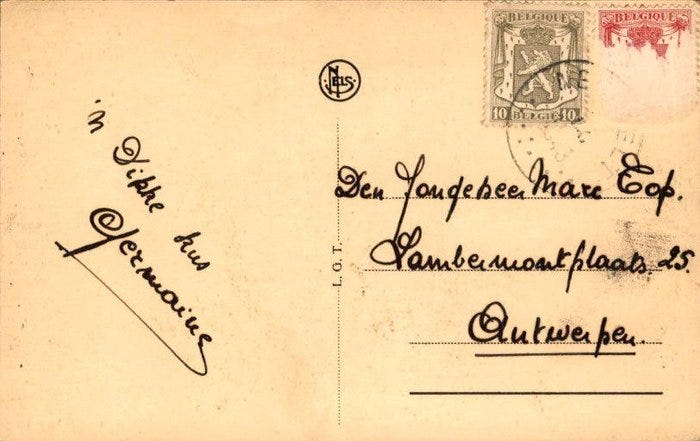 BELGIQUE
10 BELGIË 10
BELGIQUE
NELS
'n Dikke kus
Germaine
L. G. T.
Den Jongeheer Marc Eop.
Lambermontplaats. 25.
Antwerpen.